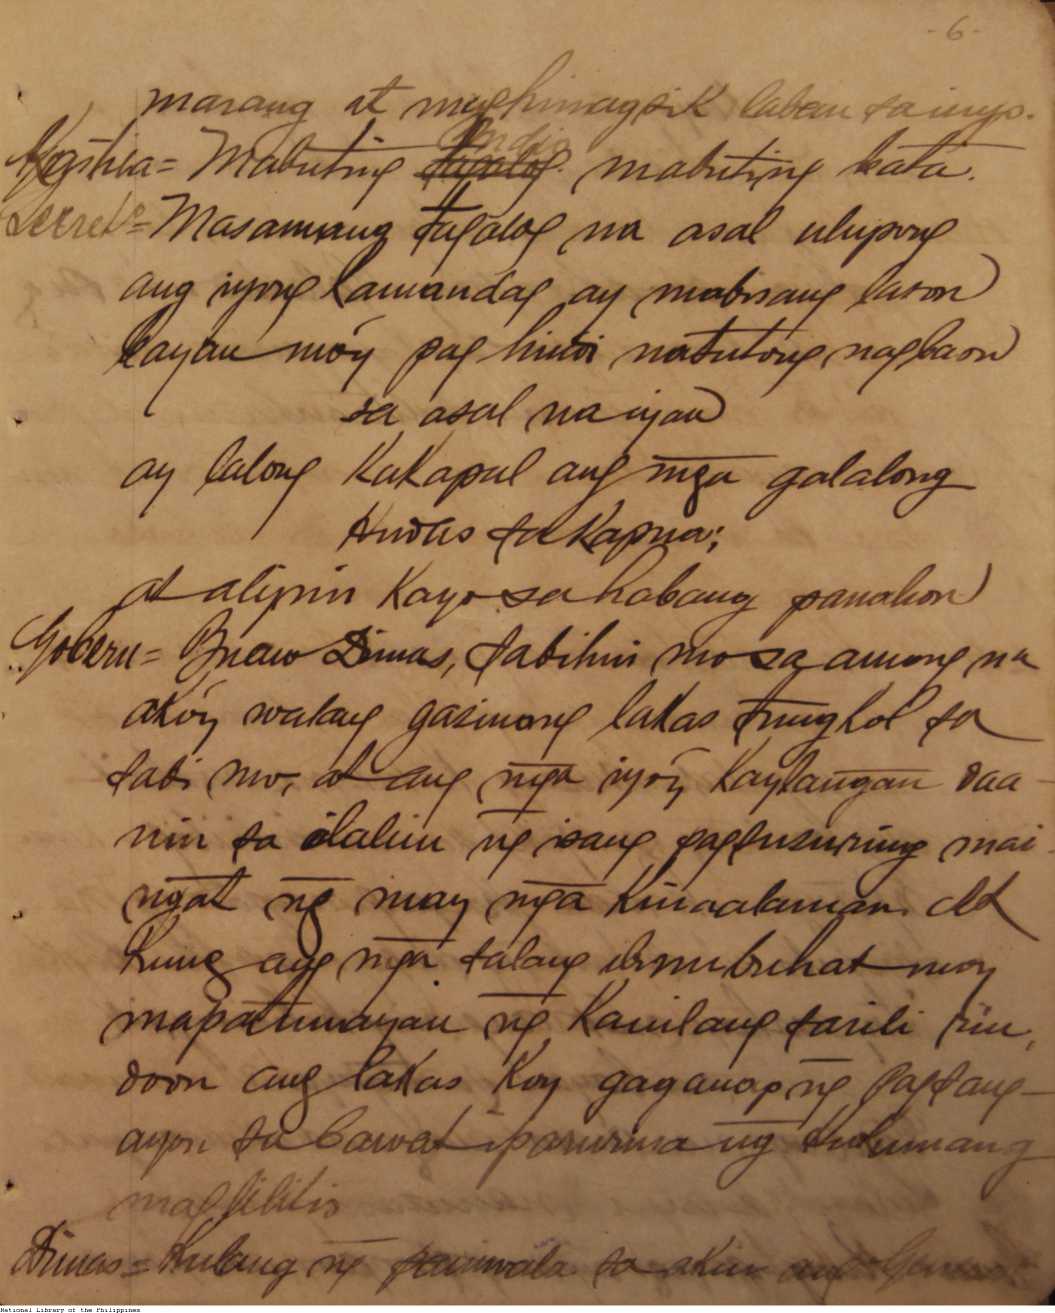 -6-
marang at maghimagsik laban sa inyo.
Mabuting India mabuting bata.
Secret.= Masamang tagalog na asal ulupong
ang iyong kamandag ay mabisang lason
kayau mo'y pag hindi natutong nagbaon
sa asal na iyan
ay lalong kakapal ang mga galalong
Hudas sa kapua;
at alipin kayo sa habang panahon
Gobern= Ikaw Dimas, sabihin mo sa among na
ako'y walang gasinong lakas tungkol sa
sabi mo, at ang mga iyo'y kaylangan daa-
nin sa ilalim ng isang pagsusuring mai-
ngat ng may mga kinaalaman. At
kung ang mga salang ibinubuhat moy
mapatunayan ng kanilang sarili rin,
doon ang lakas koy gaganap ng pagsang-
ayon sa bawat iparurusa ng hukumang
maglilitis
Dimas= Kulang ng paniwala sa akin ang
National Library of the Philippines